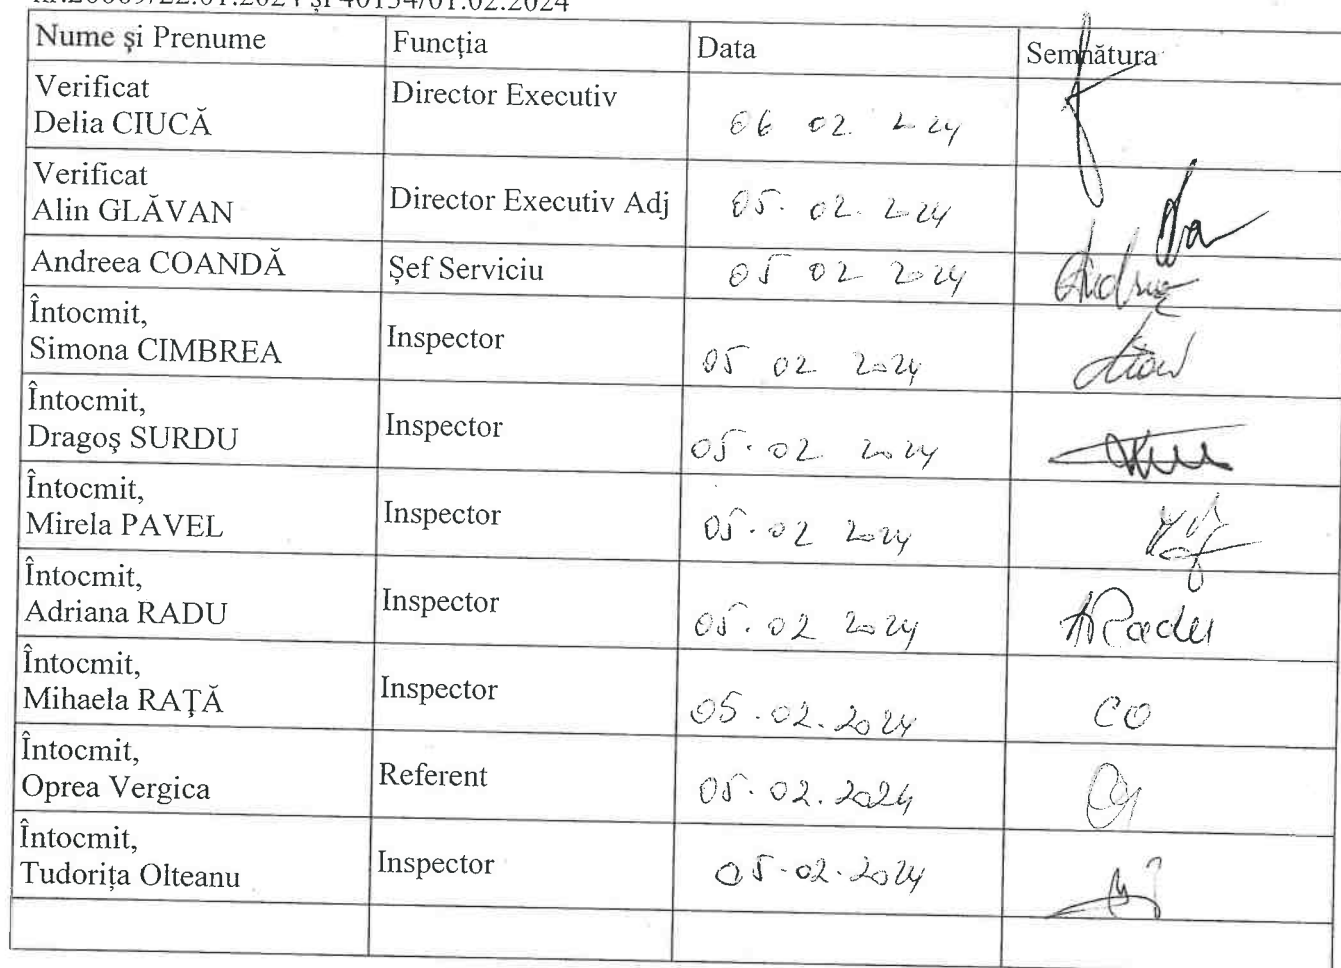 nr.20009/22.01.2024 și 40134/01.02.2024
Nume și Prenume Funcția Data Semnătura
Verificat
Delia CIUCĂ Director Executiv 06 02. 2024
Verificat
Alin GLĂVAN Director Executiv Adj 05. 02. 2024
Andreea COANDĂ Șef Serviciu 05 02 2024
Întocmit,
Simona CIMBREA Inspector 05 02 2024
Întocmit,
Dragoş SURDU Inspector 05.02 2024
Întocmit,
Mirela PAVEL Inspector 05.02 2024
Întocmit,
Adriana RADU Inspector 05.02 2024 ARadu
Întocmit,
Mihaela RAŢĂ Inspector 05.02.2024 CO
Întocmit,
Oprea Vergica Referent 05.02.2024
Întocmit,
Tudorița Olteanu Inspector 05.02.2024